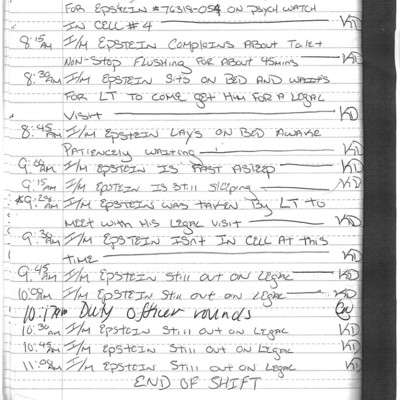 FOR EPSTEIN #76318-054 ON PSYCH WATCH
IN CELL #4 KD
8:15 AM I/M EPSTEIN COMPLAINS ABOUT TOILET
NON-STOP FLUSHING FOR ABOUT 45MINS KD
8:30 AM I/M EPSTEIN SITS ON BED AND WAITS
FOR LT TO COME GET HIM FOR A LEGAL
VISIT KD
8:45 AM I/M EPSTEIN LAYS ON BED AWAKE
PATIENCELY WAITING KD
9:00 AM I/M EPSTEIN IS FAST ASLEEP KD
9:15 AM I/M EPSTEIN IS STILL SLEEPING KD
AM I/M EPSTEIN WAS TAKEN BY LT TO
MEET WITH HIS LEGAL VISIT KD
9:30 AM I/M EPSTEIN ISN'T IN CELL AT THIS
TIME KD
9:45 AM I/M EPSTEIN STILL OUT ON LEGAL KD
10:00 AM I/M EPSTEIN STILL OUT ON LEGAL KD
10:17 AM Duty Officer rounds
10:30 AM I/M EPSTEIN STILL OUT ON LEGAL KD
10:45 AM I/M EPSTEIN STILL OUT ON LEGAL KD
11:00 AM I/M EPSTEIN STILL OUT ON LEGAL KD
END OF SHIFT